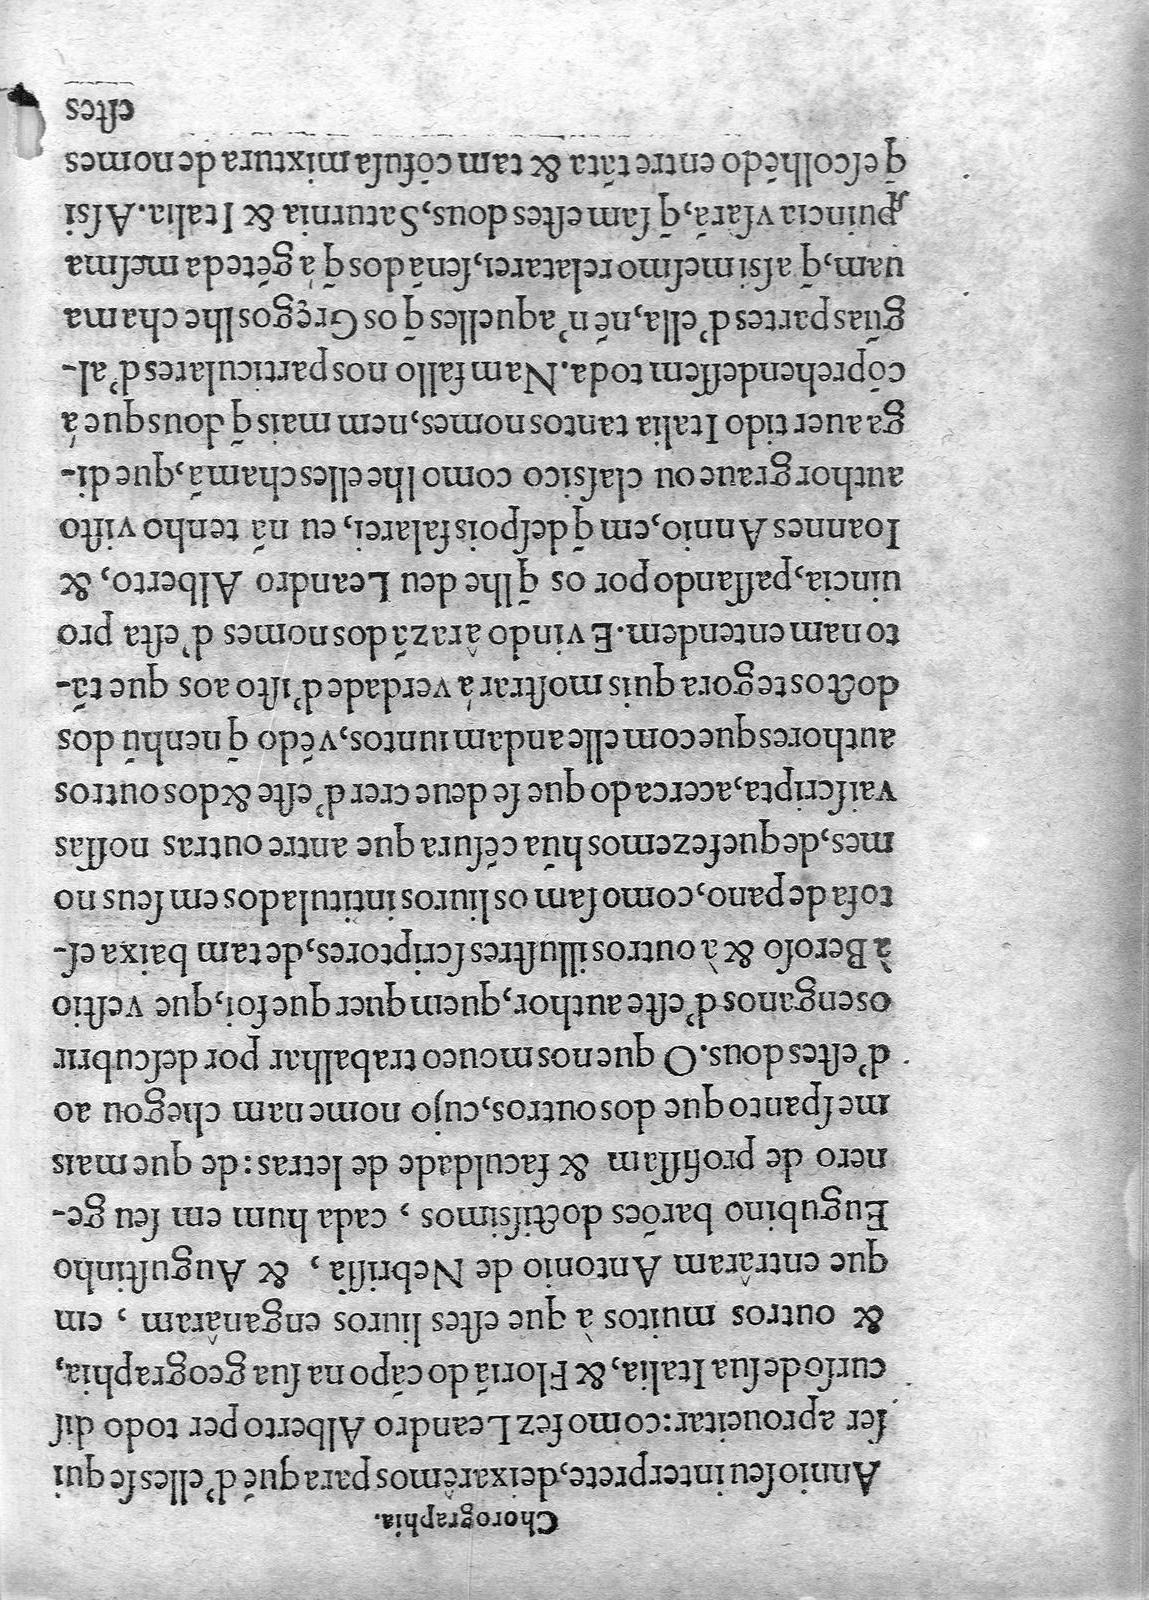 Chorographia.
Annio ſeu interprete, deixarêmos para qué d'elles ſe qui
ſer aproueitar: como fez Leandro Alberto per todo diſ
curſo de ſua Italia, & Floriã do cãpo na ſua geographia,
& outros muitos à que eſtes liuros enganâram, em
que entrâram Antonio de Nebriſſa, & Auguſtinho
Eugubino barões doctiſsimos, cada hum em ſeu ge-
nero de profiſſam & faculdade de letras: de que mais
m eſpanto que dos outros, cujo nome nam chegou ao
d'eſtes dous. O que nos moueo trabalhar por deſcubrir
os enganos d'eſte author, quem quer que foi, que veſtio
à Beroſo & à outros illuſtres ſcriptores, de tam baixa eſ-
tofa de pano, como ſam os liuros intitulados em ſeus no
mes, de que fezemos hũa cẽſura que antre outras noſſas
vai ſcripta, acerca do que ſe deue crer d'eſte & dos outros
authores que com elle andam iuntos, vẽdo q̃ nenhũ dos
doctos tegora quis moſtrar á verdade d'iſto aos que tã-
to nam entendem. E vindo â razã dos nomes d'eſta pro
uincia, paſſando por os q̃ lhe deu Leandro Alberto, &
Ioannes Annio, em q̃ deſpois falarei, eu nã tenho viſto
author graue ou claſsico como lhe elles chamã, que di-
ga auer tido Italia tantos nomes, nem mais q̃ dous que á
cõprehendeſſem toda. Nam fallo nos particulares d'al-
gũas partes d'ella, nẽ n'aquelles q̃ os Gręgos lhe chama
uam, q̃ aſsi meſmo relatarei, ſenã dos q̃ á gẽte da meſma
ꝓuincia vſarã, q̃ ſam eſtes dous, Saturnia & Italia. Aſsi
q̃ eſcolhẽdo entre tãta & tam cõfuſa mixtura de nomes
eſtes